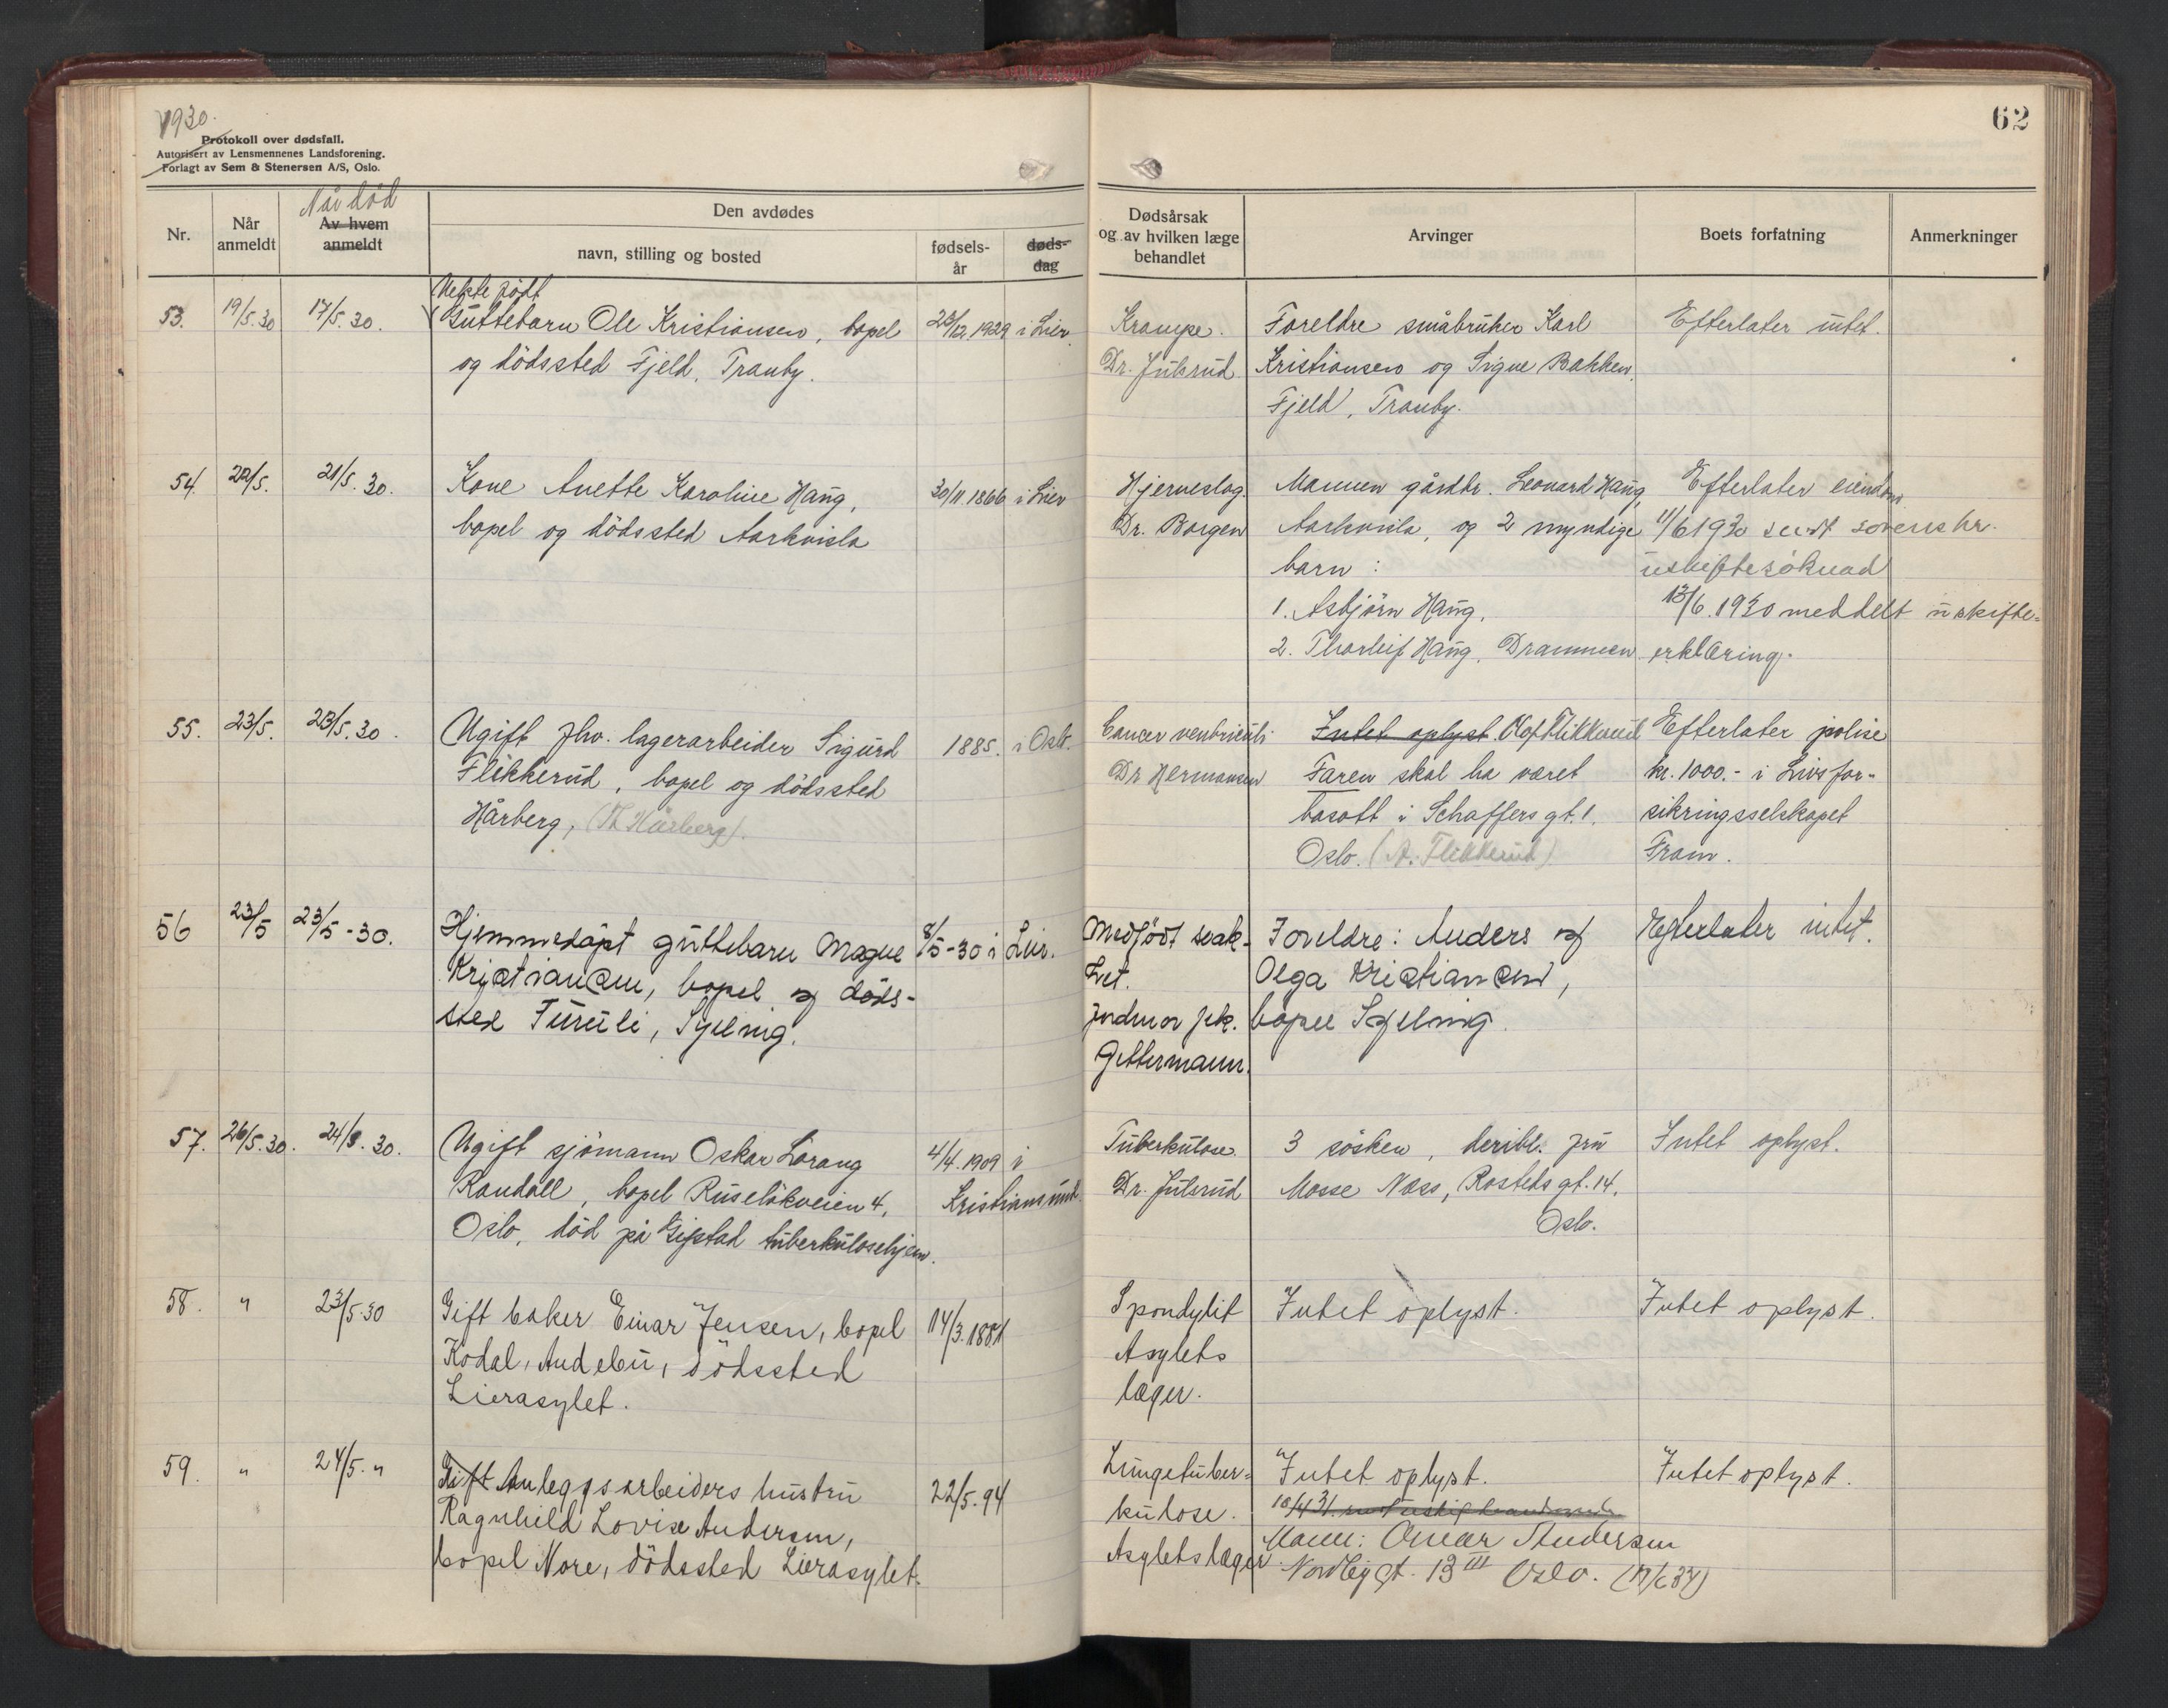 1930.
Protokoll over dødsfall.
Autorisert av Lensmennenes Landsforening.
Forlagt av Sem & Stenersen A/S, Oslo.
62
Nr.
Når anmeldt
Når død
Av hvem anmeldt
Den avdødes
navn, stilling og bosted
fødsels-år
døds-dag
Dødsårsak
og av hvilken læge
behandlet
Arvinger
Boets forfatning
Anmerkninger
53. 19/5.30 17/5.30.
Uekte födt
Guttebarn Ole Kristiansen, bopel 25/12.1929 i Lier.
og dödssted Fjeld, Tranby.
Krampe.
Dr. Julsrud
Foreldre småbruker Karl
Kristiansen og Signe Bakken,
Fjeld, Tranby.
Efterlater intet.
54. 22/5. 21/5.30.
Kone Anette Karoline Haug, 30/11.1866 i Lier
bopel og dödssted Aarkvisla
Hjerneslag.
Dr. Borgen
Mannen gårdbr. Leonard Haug,
Aarkvisla, og 2 myndige
barn:
1. Asbjörn Haug,
2. Thorleif Haug, Drammen
Efterlater eiendom
11/6 1930 sendt sorenskr.
uskiftesöknad
13/6.1930 meddelt uskifte=
erklæring.
55. 23/5. 23/5.30.
Ugift fhv. lagerarbeider Sigurd 1885. i Oslo.
Flikkerud, bopel og dödssted
Hårberg, (Th Hårberg).
Cancer ventriculi
Dr Hermansen
Intet oplyst. Olof Flikkerud
Faren skal ha været
bosatt i Schaffers gt. 1.
Oslo. (A. Flikkerud)
Efterlater polise
kr. 1000.- i Livsfor-
sikringsselskapet
Fram.
56 23/5 23/5-30.
Hjemmedöpt guttebarn Magne 8/5-30 i Lier.
Kristiansen, bopel og döds-
sted Furuli, Sylling.
Medfödt svak-
het.
Jordmor frk.
Gettermann.
Foreldre: Anders og
Olga Kristiansen,
bopel Sylling.
Efterlater intet.
57. 26/5.30. 24/5.30.
Ugift sjömann Oskar Lorang 4/4.1909 i
Randall, bopel Ruselökveien 4, Kristiansund.
Oslo, död på Gifstad tuberkulosehjem.
Tuberkulose.
Dr. Julsrud
3 sösken, deribl. fru
Mosse Næss, Rosteds gt. 14,
Oslo.
Intet oplyst.
58. " 23/5.30
Gift baker Einar Jensen, bopel 14/3.1881
Kodal, Andebu, dödssted
Lierasylet.
Spondylit
Asylets
læger.
Intet oplyst.
Intet oplyst.
59. " 24/5. "
Gift Anleggsarbeiders hustru 22/5.94
Ragnhild Lovise Andersen,
bopel Nore, dödssted Lierasylet.
Lungetuber=
kulose.
Asylets læger.
Intet oplyst.
10/4 31.
Mann: Omar Andersen
Nordbygt. 13 III Oslo.
Intet oplyst.